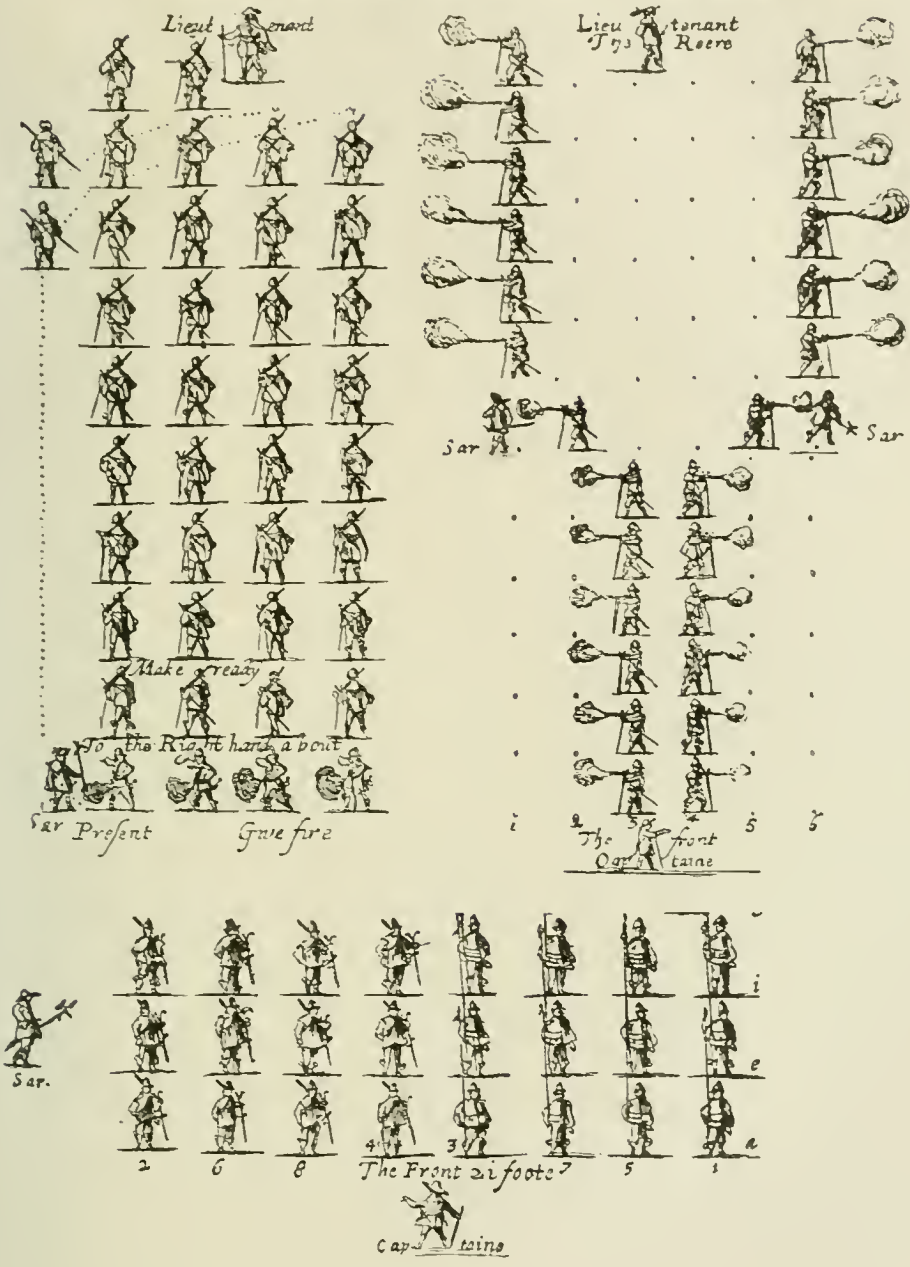 Lieut enant
Make ready
To the Right hand a bout
Sar
Present Give fire
Lieu tenant
Reere
Sar Sar
1 2 3 4 5 6
The front
Cap taine
i
e
a
Sar.
4 3
2 6 8 7 5 1
The Front 21 foote
Cap taine